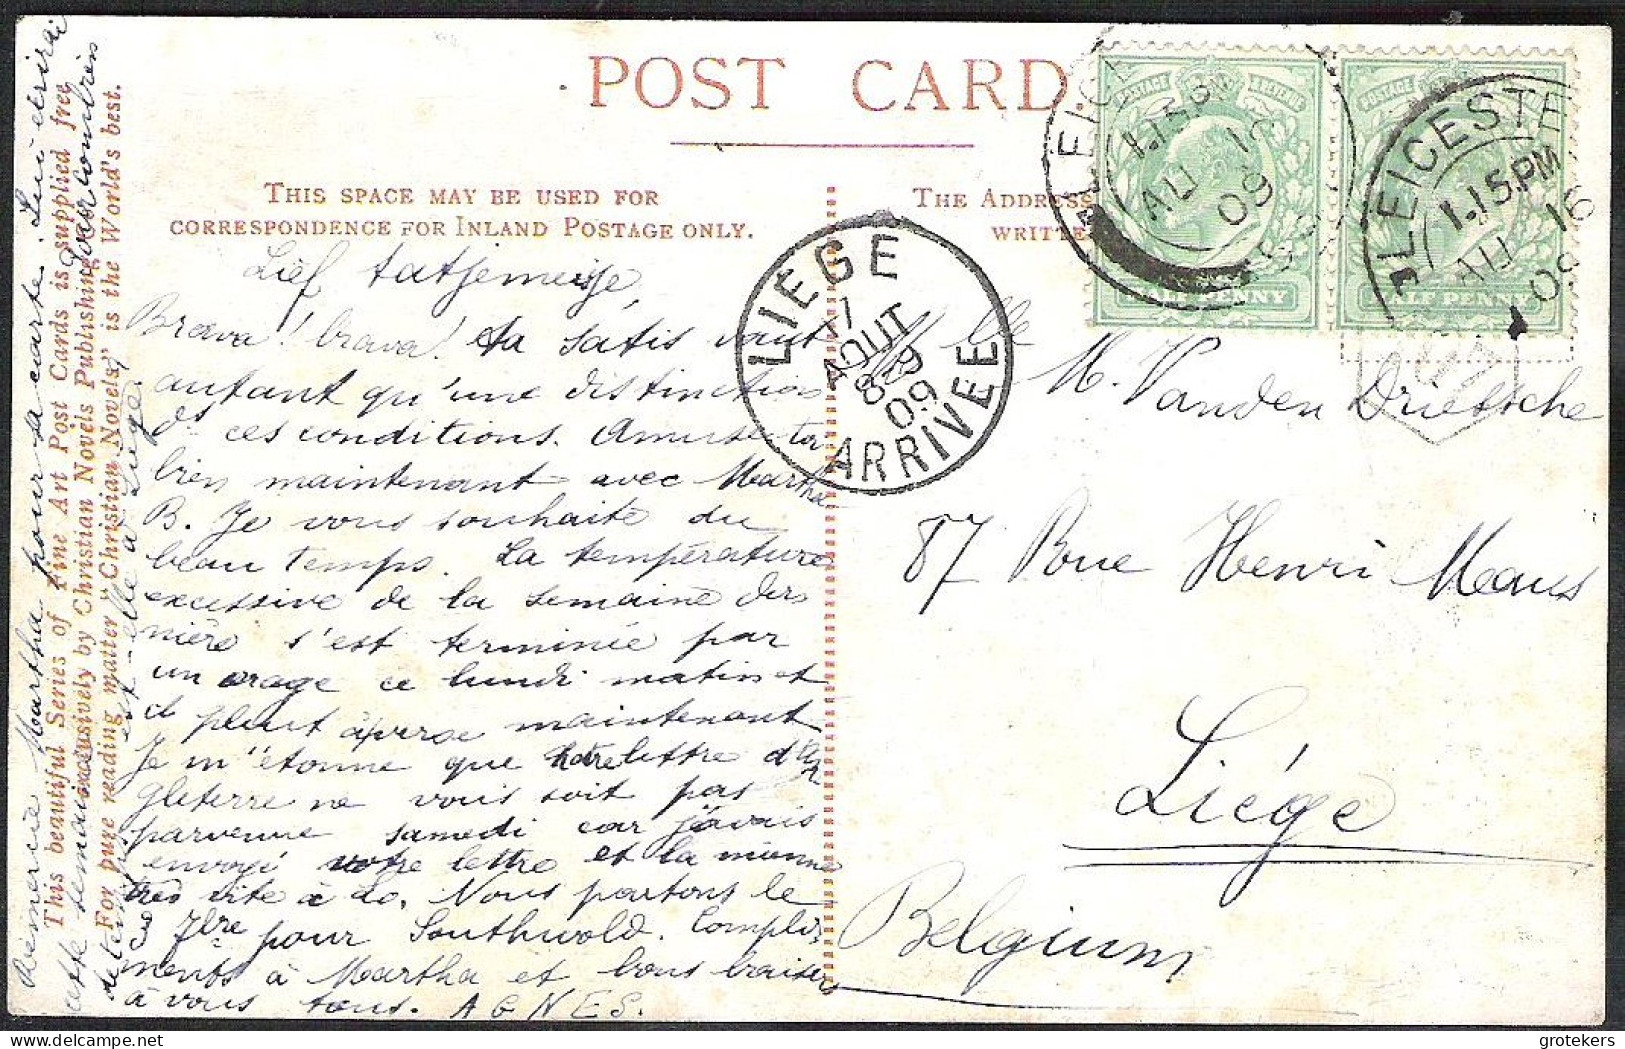 POST CARD.
THIS SPACE MAY BE USED FOR
CORRESPONDENCE FOR INLAND POSTAGE ONLY.
THE ADDRESS
WRITTE
Lief tatjemeisje,
Brava! brava! La satis vaut
autant qu'une distinction
ds ces conditions. Amuse-toi
bien maintenant avec Martha
B. Je vous souhaite du
beau temps. La température
excessive de la semaine der
nière s'est terminée par
un orage ce lundi matin et
il pleut à verse maintenant
Je m'étonne que notre lettre d'An
gleterre ne vous soit pas
parvenue samedi car j'avais
envoyé votre lettre et la mienne
très vite à Lo. Nous partons le
7ère pour Southwold. Compli-
ments à Martha et bons baisers
à vous tous. AGNES.
Remercie Martha pour sa carte. Lui écrirai
cette semaine
est-elle à Liège
This beautiful Series of Fine Art Post Cards is supplied free
exclusively by Christian Novels Publishing
For pure reading matter "Christian Novels" is the World's best.
Mlle
M. Vanden Driessche
87 Rue Henri Maus
Liége
Belgium
LEICESTE
1.15 PM
AU 16
09
LEICESTE
1.15 PM
AU 16
09
POSTAGE REVENUE
HALF PENNY
POSTAGE
HALF PENNY
LIEGE
17
AOUT
8-9
09
ARRIVEE
grotekers | Delcampe.net